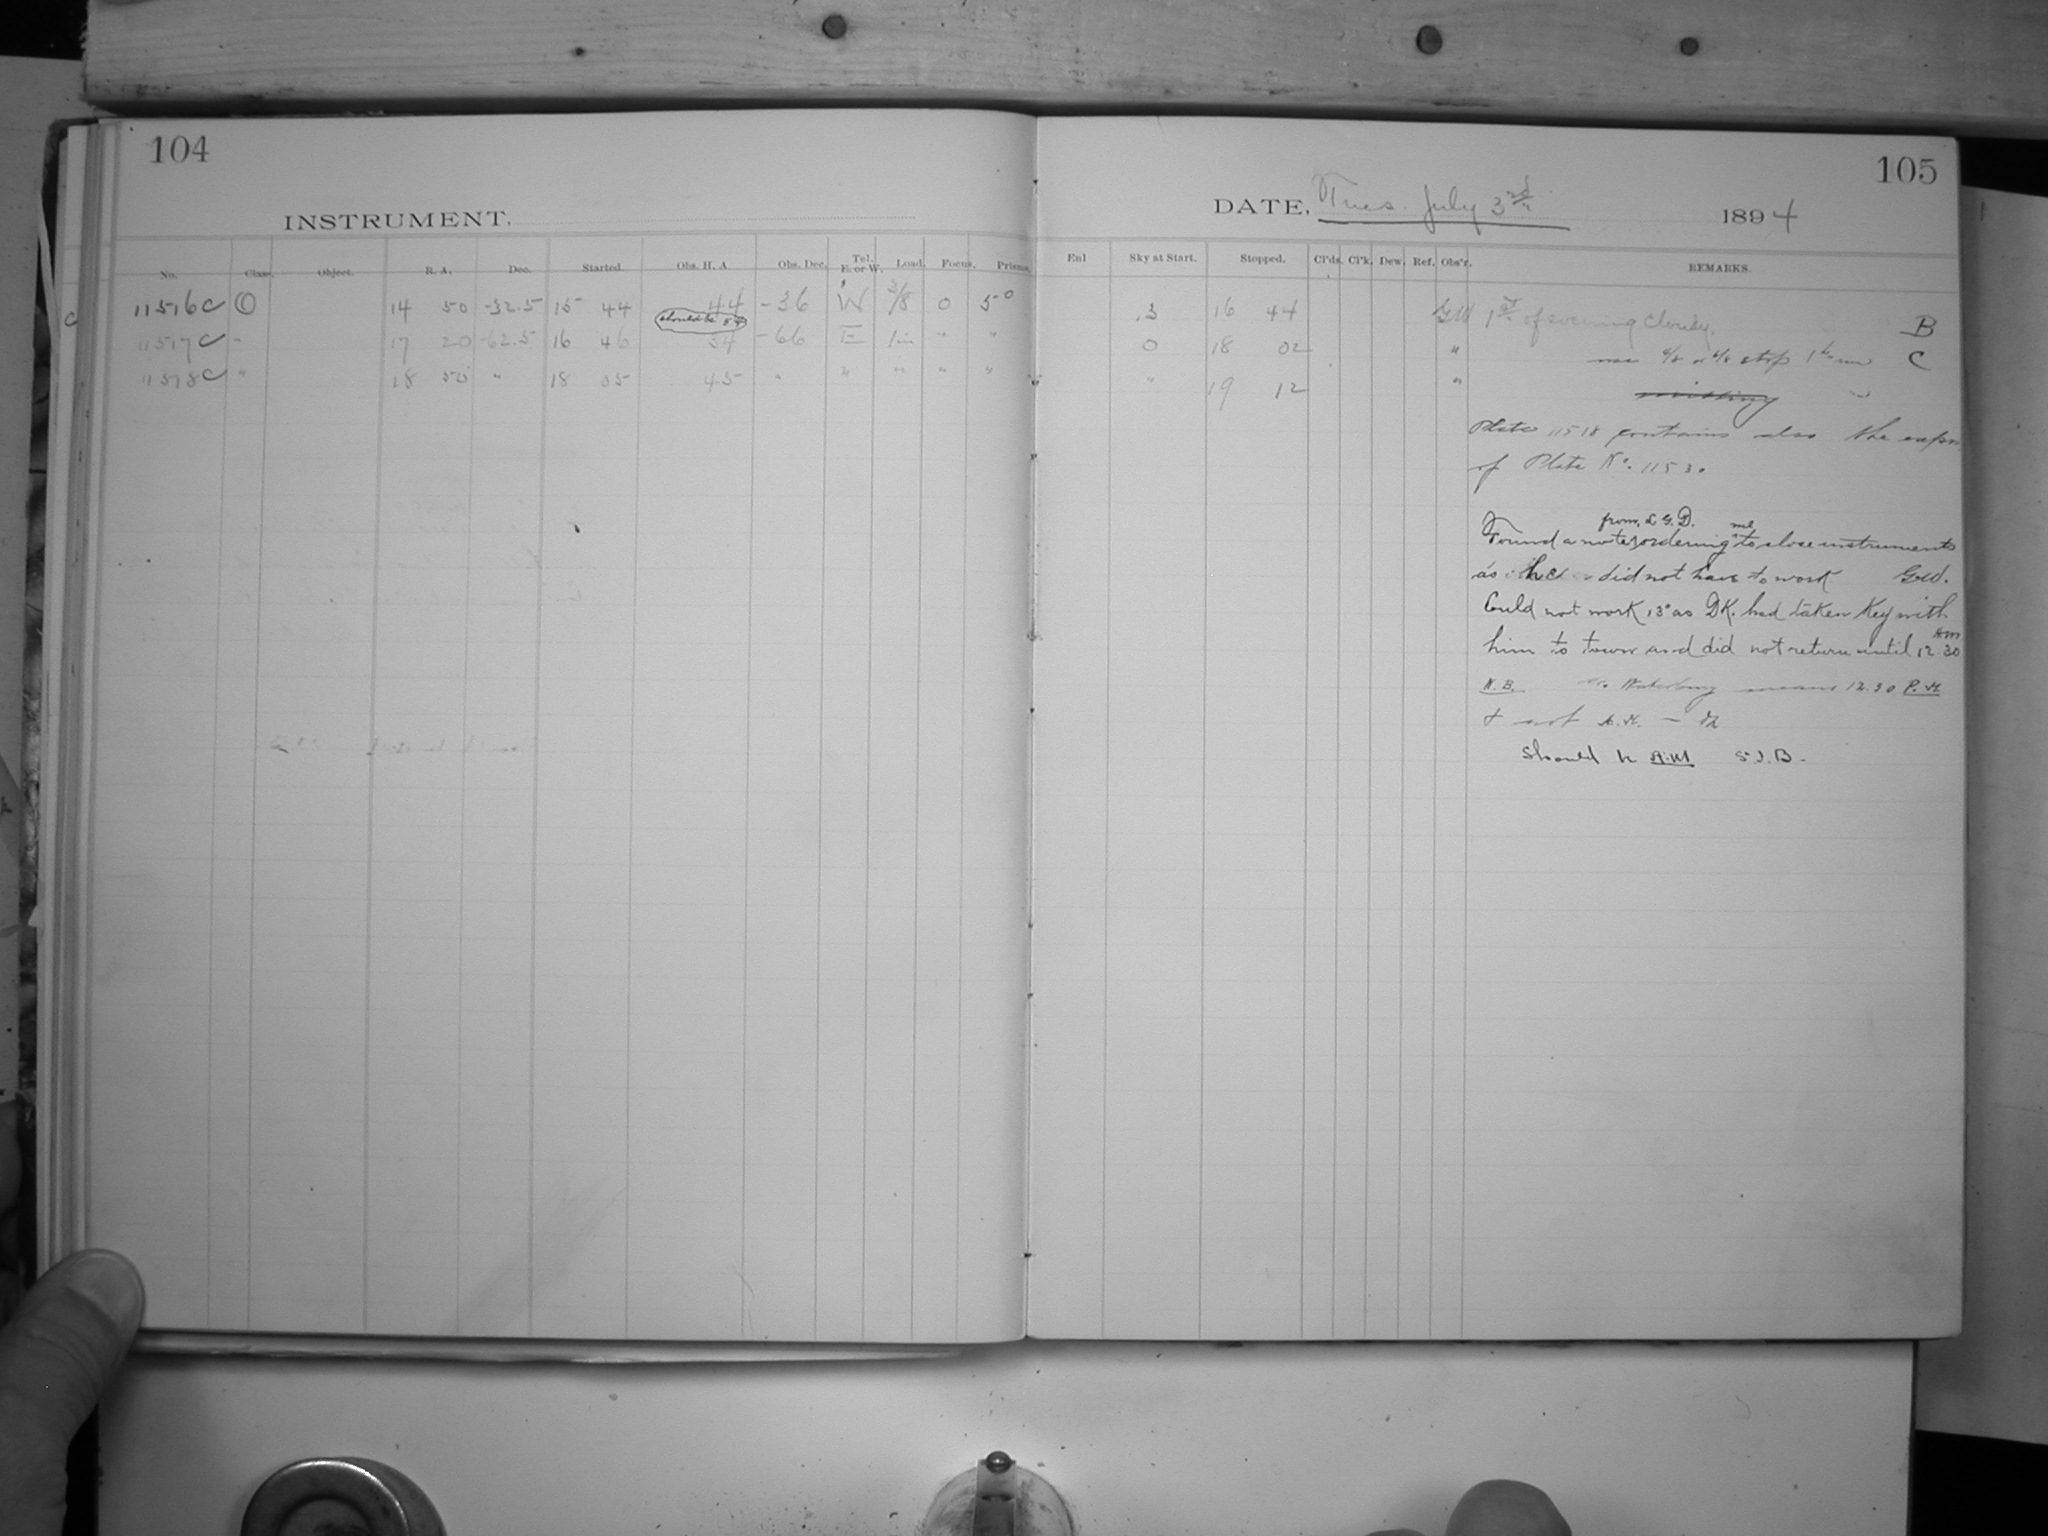 104
INSTRUMENT,
No. Class. Object. R. A. Dec. Started. Obs. H. A. Obs. Dec. Tel. E. or W. Load. Focus. Prisms.
11516C O 14 50 -32.5 15 44 44 -36 W 3/8 0 5°
should be 54
11517C " 17 20 -62.5 16 46 54 -66 E 1 in " "
11518C " 18 50 " 18 05 45 " " " " "
105
DATE, Tues. July 3rd 1894
Enl Sky at Start. Stopped. Cl'ds. Cl'k. Dew. Ref. Obs'r. REMARKS.
.3 16 44 GW 1st of evening cloudy. B
0 18 02 " stop C
" 19 12 "
Plate 11518 contains also the expn
of Plate No. 11530
from, L G. D. me
Found a note, ordering to close instruments
as he did not have to work GW.
Could not work 13" as DK. had taken Key with
him to town and did not return until 12.30 AM
N.B. Mr. Waterbury means 12.30 P.M
& not A.M. —
Should be A.M S.I.B.